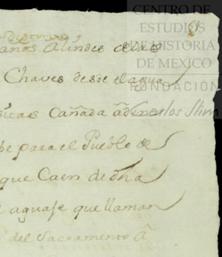 CENTRO DE
ESTUDIOS
DE HISTORIA
DE MEXICO
FUNDACION
Carlos Slim
años Alindes
Chaves desde el agua
Cañada
para el Pueble de
que Caen de dha
aguaje que llaman
del Sacramento â